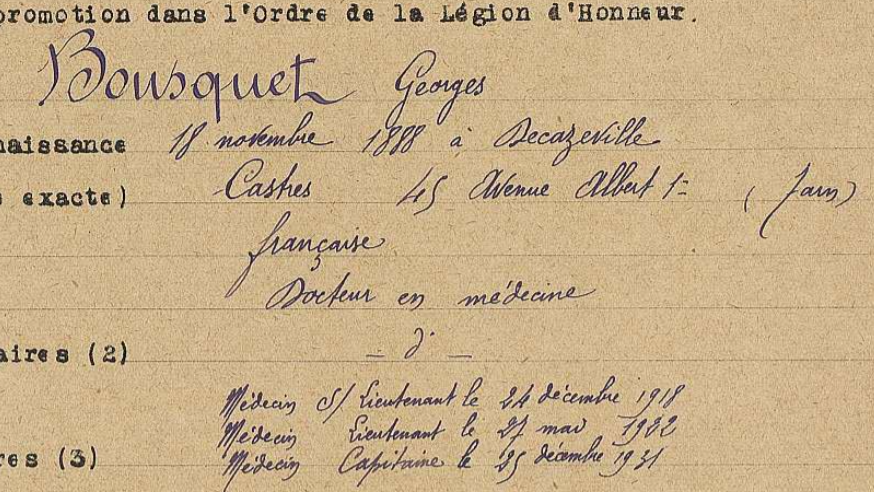 promotion dans l'Ordre de la Légion d'Honneur.
Bousquet Georges
naissance 18 novembre 1888 à Decazeville
exacte) Castres 45 Avenue Albert 1er (Tarn)
française
Docteur en médecine
aires (2) — d° —
Médecin S/ Lieutenant le 24 décembre 1918
Médecin Lieutenant le 27 mai 1922
res (3) Médecin Capitaine le 25 décembre 1931